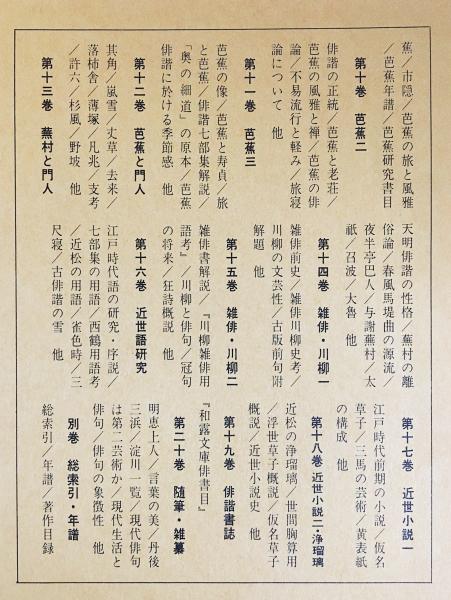 蕉／市隠／芭蕉の旅と風雅
／芭蕉年譜／芭蕉研究書目
第十巻　芭蕉二
俳諧の正統／芭蕉と老荘／
芭蕉の風雅と禅／芭蕉の俳
論／不易流行と軽み／旅寝
論について　他
第十一巻　芭蕉三
芭蕉の像／芭蕉と寿貞／旅
と芭蕉／俳諧七部集解説／
「奥の細道」の原本／芭蕉
俳諧に於ける季節感　他
第十二巻　芭蕉と門人
其角／嵐雪／丈草／去来／
落柿舎／薄塚／凡兆／支考
／許六／杉風／野坡　他
第十三巻　蕪村と門人
天明俳諧の性格／蕪村の離
俗論／春風馬堤曲の源流／
夜半亭巴人／与謝蕪村／太
祇／召波／大魯　他
第十四巻　雑俳・川柳一
雑俳前史／雑俳川柳史考／
川柳の文芸性／古版前句附
解題　他
第十五巻　雑俳・川柳二
雑俳書解説／『川柳雑俳用
語考』／川柳と俳句／冠句
の将来／狂詩概説　他
第十六巻　近世語研究
江戸時代語の研究・序説／
七部集の用語／西鶴用語考
／近松の用語／雀色時／三
尺寝／古俳諧の雪　他
第十七巻　近世小説一
江戸時代前期の小説／仮名
草子／三馬の芸術／黄表紙
の構成　他
第十八巻　近世小説二・浄瑠璃
近松の浄瑠璃／世間胸算用
／浮世草子概説／仮名草子
概説／近世小説史　他
第十九巻　俳諧書誌
『和露文庫俳書目』
第二十巻　随筆・雑纂
明恵上人／言葉の美／丹後
三浜／淀川一覧／現代俳句
は第二芸術か／現代生活と
俳句／俳句の象徴性　他
別巻　総索引・年譜
総索引／年譜／著作目録